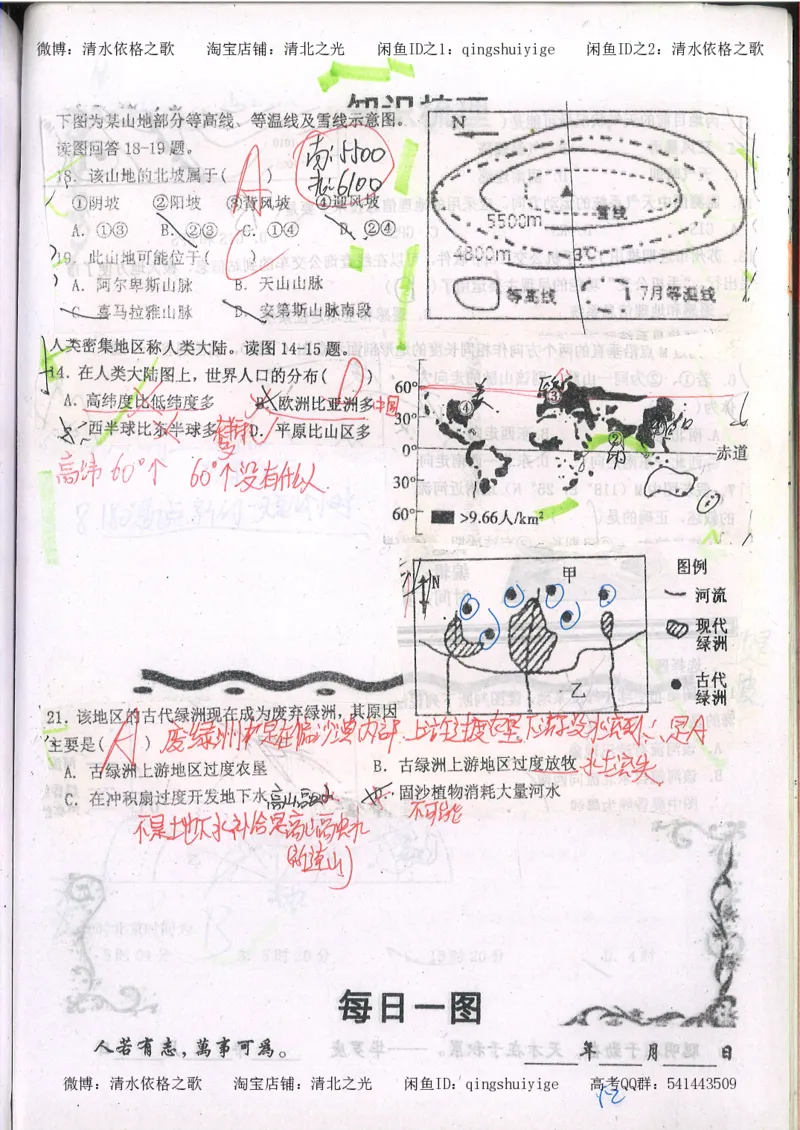 微博：清水依格之歌 淘宝店铺：清北之光 闲鱼ID之1：qingshuiyige 闲鱼ID之2：清水依格之歌
下图为某山地部分等高线、等温线及雪线示意图。
读图回答18-19题。
南:5500
北:6100
18．该山地的北坡属于( A )
①阴坡 ②阳坡 ③背风坡 ④迎风坡
A．①③ B．②③ C．①④ D．②④
19．此山地可能位于( )
A．阿尔卑斯山脉 B．天山山脉
C．喜马拉雅山脉 D．安第斯山脉南段
N
5500m
雪线
4800m
3℃
等高线
7月等温线
人类密集地区称人类大陆。读图14-15题。
14．在人类大陆图上，世界人口的分布( D )
A．高纬度比低纬度多 B．欧洲比亚洲多
中国
C．西半球比东半球多 D．平原比山区多
高纬60°个 60°个没有什么
60°
30°
0°
30°
60°
④
美
③
②
①
赤道
>9.66人/km²
N
甲
乙
图例
河流
现代
绿洲
古代
绿洲
21．该地区的古代绿洲现在成为废弃绿洲，其原因
主要是( A )
A．古绿洲上游地区过度农垦 B．古绿洲上游地区过度放牧
水土流失
C．在冲积扇过度开发地下水 D．固沙植物消耗大量河水
不可能
不是地下水补给是高山高央水
每日一图
人若有志，萬事可為。
年 月 日
微博：清水依格之歌 淘宝店铺：清北之光 闲鱼ID：qingshuiyige 高考QQ群：541443509